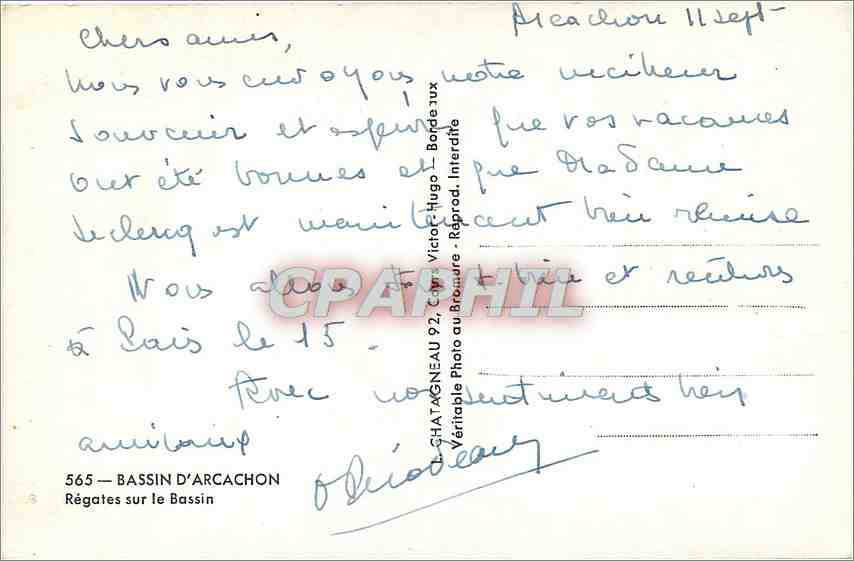 Arcachon 11 sept
Chers amis,
Nous vous envoyons notre meilleur
souvenir et espérons que vos vacances
ont été bonnes et que Madame
Leclercq est maintenant bien remise
Nous allons très bien et rentrons
à Paris le 15.
Avec nos sentiments bien
amicaux
565 — BASSIN D'ARCACHON
Régates sur le Bassin
L. CHATAGNEAU 92, Cours Victor-Hugo — Bordeaux
Véritable Photo au Bromure - Réprod. Interdite
CPAPHIL